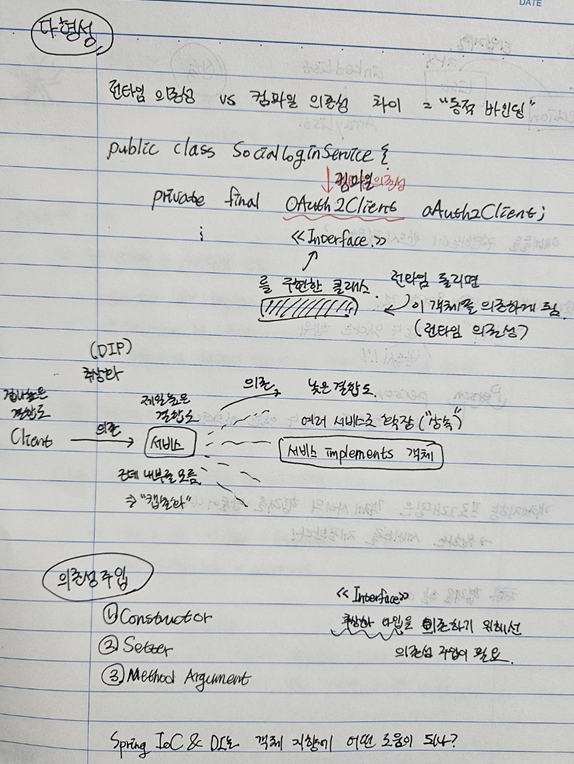 DATE
다형성
런타임 의존성 vs 컴파일 의존성 차이 = "동적 바인딩"
public class SocialLoginService {
컴파일 의존성
private final OAuth2Client oAuth2Client;
<<Interface>>
를 구현한 클래스
런타임 돌리면
이 객체를 의존하게 됨
(런타임 의존성)
(DIP)
추상화
결합도
Client
의존
제일 높은
결합도
서비스
근데 내부를 모름
⇒ "캡슐화"
의존
낮은 결합도.
여러 서비스로 확장 ("상속")
서비스 implements 객체
의존성 주입
① Constructor
② Setter
③ Method Argument
<<Interface>>
추상화 타입을 의존하기 위해선
의존성 주입이 필요.
Spring IoC & DI는 객체 지향에 어떤 도움이 되나?